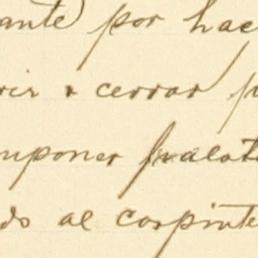 ante por hac
rir & cerrar p
mponer
ds al carpinte